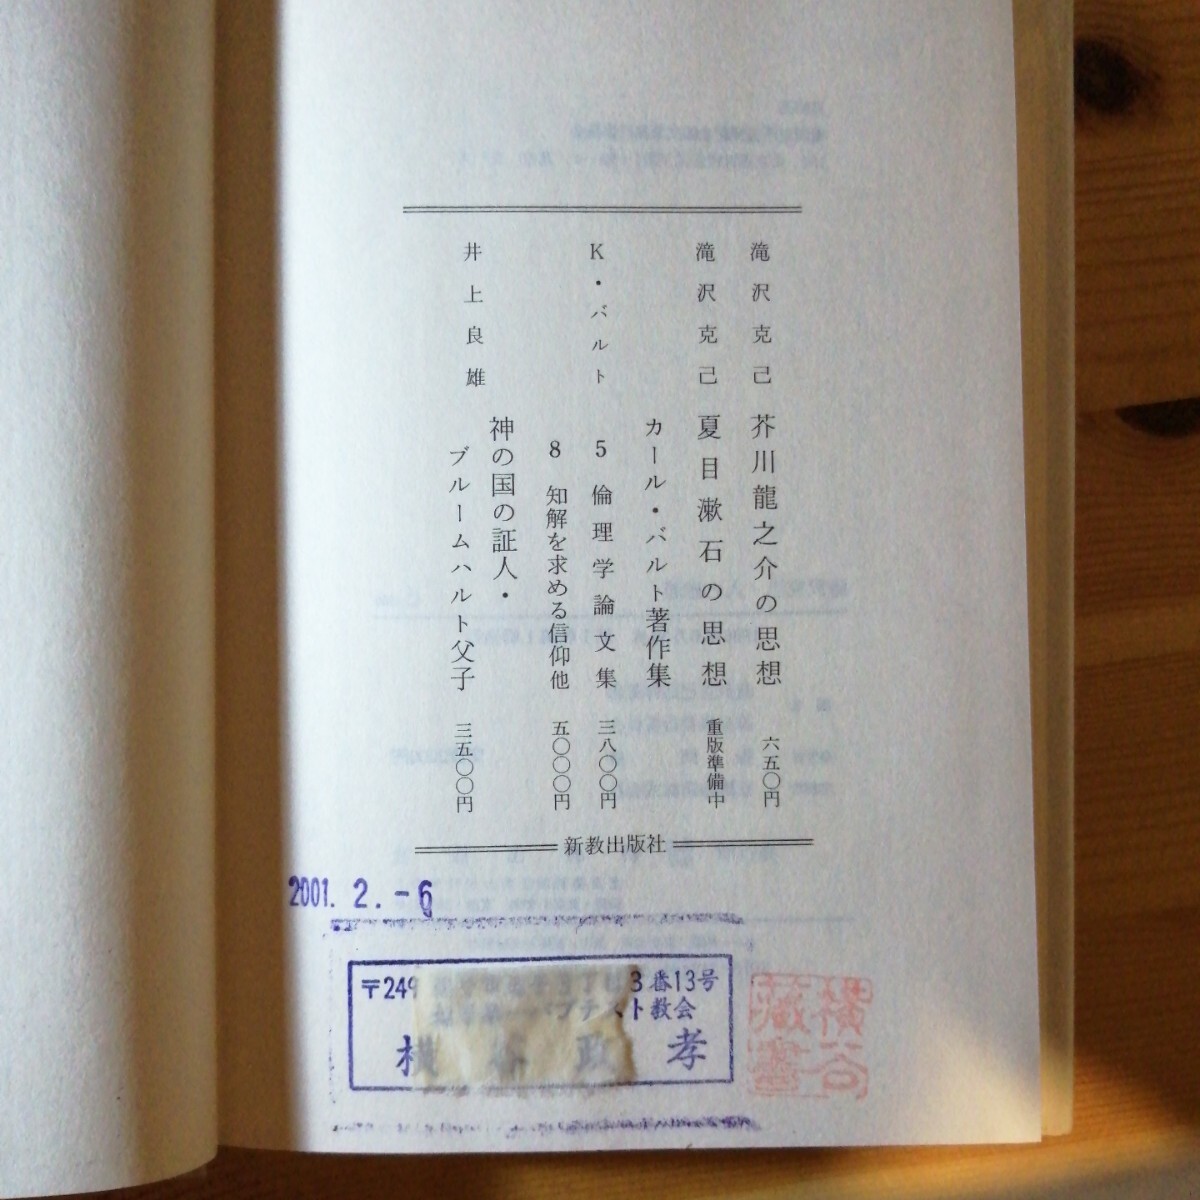 滝沢克己 芥川龍之介の思想 六五〇円
滝沢克己 夏目漱石の思想 重版準備中
カール・バルト著作集
K・バルト 5 倫理学論文集 三八〇〇円
8 知解を求める信仰他 五〇〇〇円
井上良雄 神の国の証人・
ブルームハルト父子 三五〇〇円
新教出版社
2001. 2. -6
〒249 3番13号
バプテスト教会
横 政 孝
横谷
蔵書